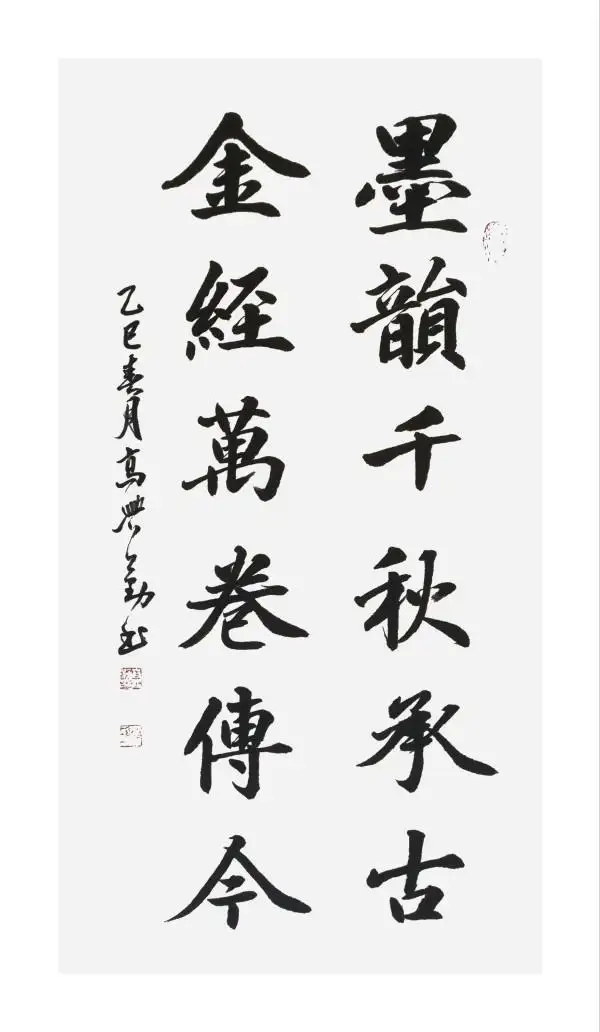 墨韻千秋承古
金經萬卷傳今
乙巳春月高興勤書